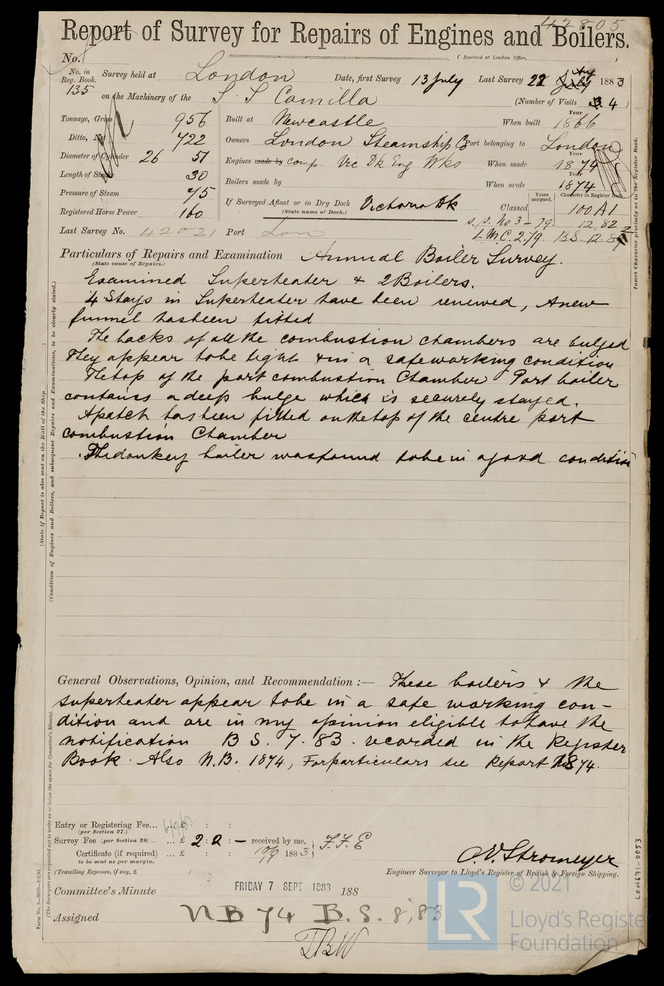 42805
Report of Survey for Repairs of Engines and Boilers.
(Received at London Office,
No.
No. in Reg. Book. 135
Survey held at London Date, first Survey 13 July Last Survey 22 July Aug 1883
on the Machinery of the S. S Camilla (Number of Visits 3 4)
Tonnage, Gross 956
Ditto, Net 722
Diameter of Cylinder 26 51
Length of Stroke 30
Pressure of Steam 75
Registered Horse Power 160
Last Survey No. 42021 Port Lon
Built at Newcastle When built Year 1866
Owners London Steamship Co Port belonging to London
Engines made by comp. Vic Dk Eng Wks When made Year 1874
Boilers made by When made Year 1874
If Surveyed Afloat or in Dry Dock Victoria Dk
(State name of Dock.)
Years assigned. Character in Register Book
Classed 100 A1
s.s. No 3 - 79 12.82
L.M.C. 2.79 B.S. 12.82
Insert Character precisely as in the Register Book.
Particulars of Repairs and Examination Annual Boiler Survey.
(State cause of Repairs.)
Examined Superheater & 2 Boilers.
4 Stays in Superheater have been renewed, A new
funnel has been fitted
The backs of all the combustion chambers are bulged
They appear to be tight & in a safe working condition
The top of the port combustion Chamber Port boiler
contains a deep bulge which is securely stayed.
A patch has been fitted on the top of the centre port
combustion Chamber
The donkey boiler was found to be in a good condition
(State if Report is also sent on the Hull of the Ship.
(Condition of Engines and Boilers, and subsequent Repairs and Examinations, to be clearly stated.)
General Observations, Opinion, and Recommendation :— These boilers & the
superheater appear to be in a safe working con-
dition and are in my opinion eligible to have the
notification B S. 7.83. recorded in the Register
Book. Also N.B. 1874, For particulars see Report 1874.
(The Surveyors are requested not to write on or below the space for Committee's Minute).
Entry or Registering Fee...
(per Section 27.)
Survey Fee (per Section 28) ... £ 2 : 2 : — received by me,
Certificate (if required) ... £ : : 10/9 1883 F.F.E
to be sent as per margin.
(Travelling Expenses, if any, £ )
C. E. Stromeyer
Engineer Surveyor to Lloyd's Register of British & Foreign Shipping.
Committee's Minute FRIDAY 7 SEPT 1883 188
Assigned NB 74 B.S. 8,83
LON671-0053
LR
© 2021
Lloyd's Register
Foundation